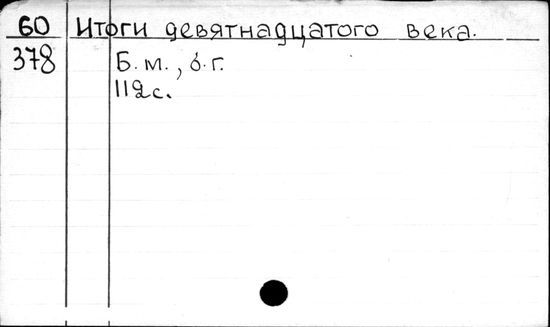 60 Итоги девятнадцатого века.
378 Б. м., б. г.
112 с.